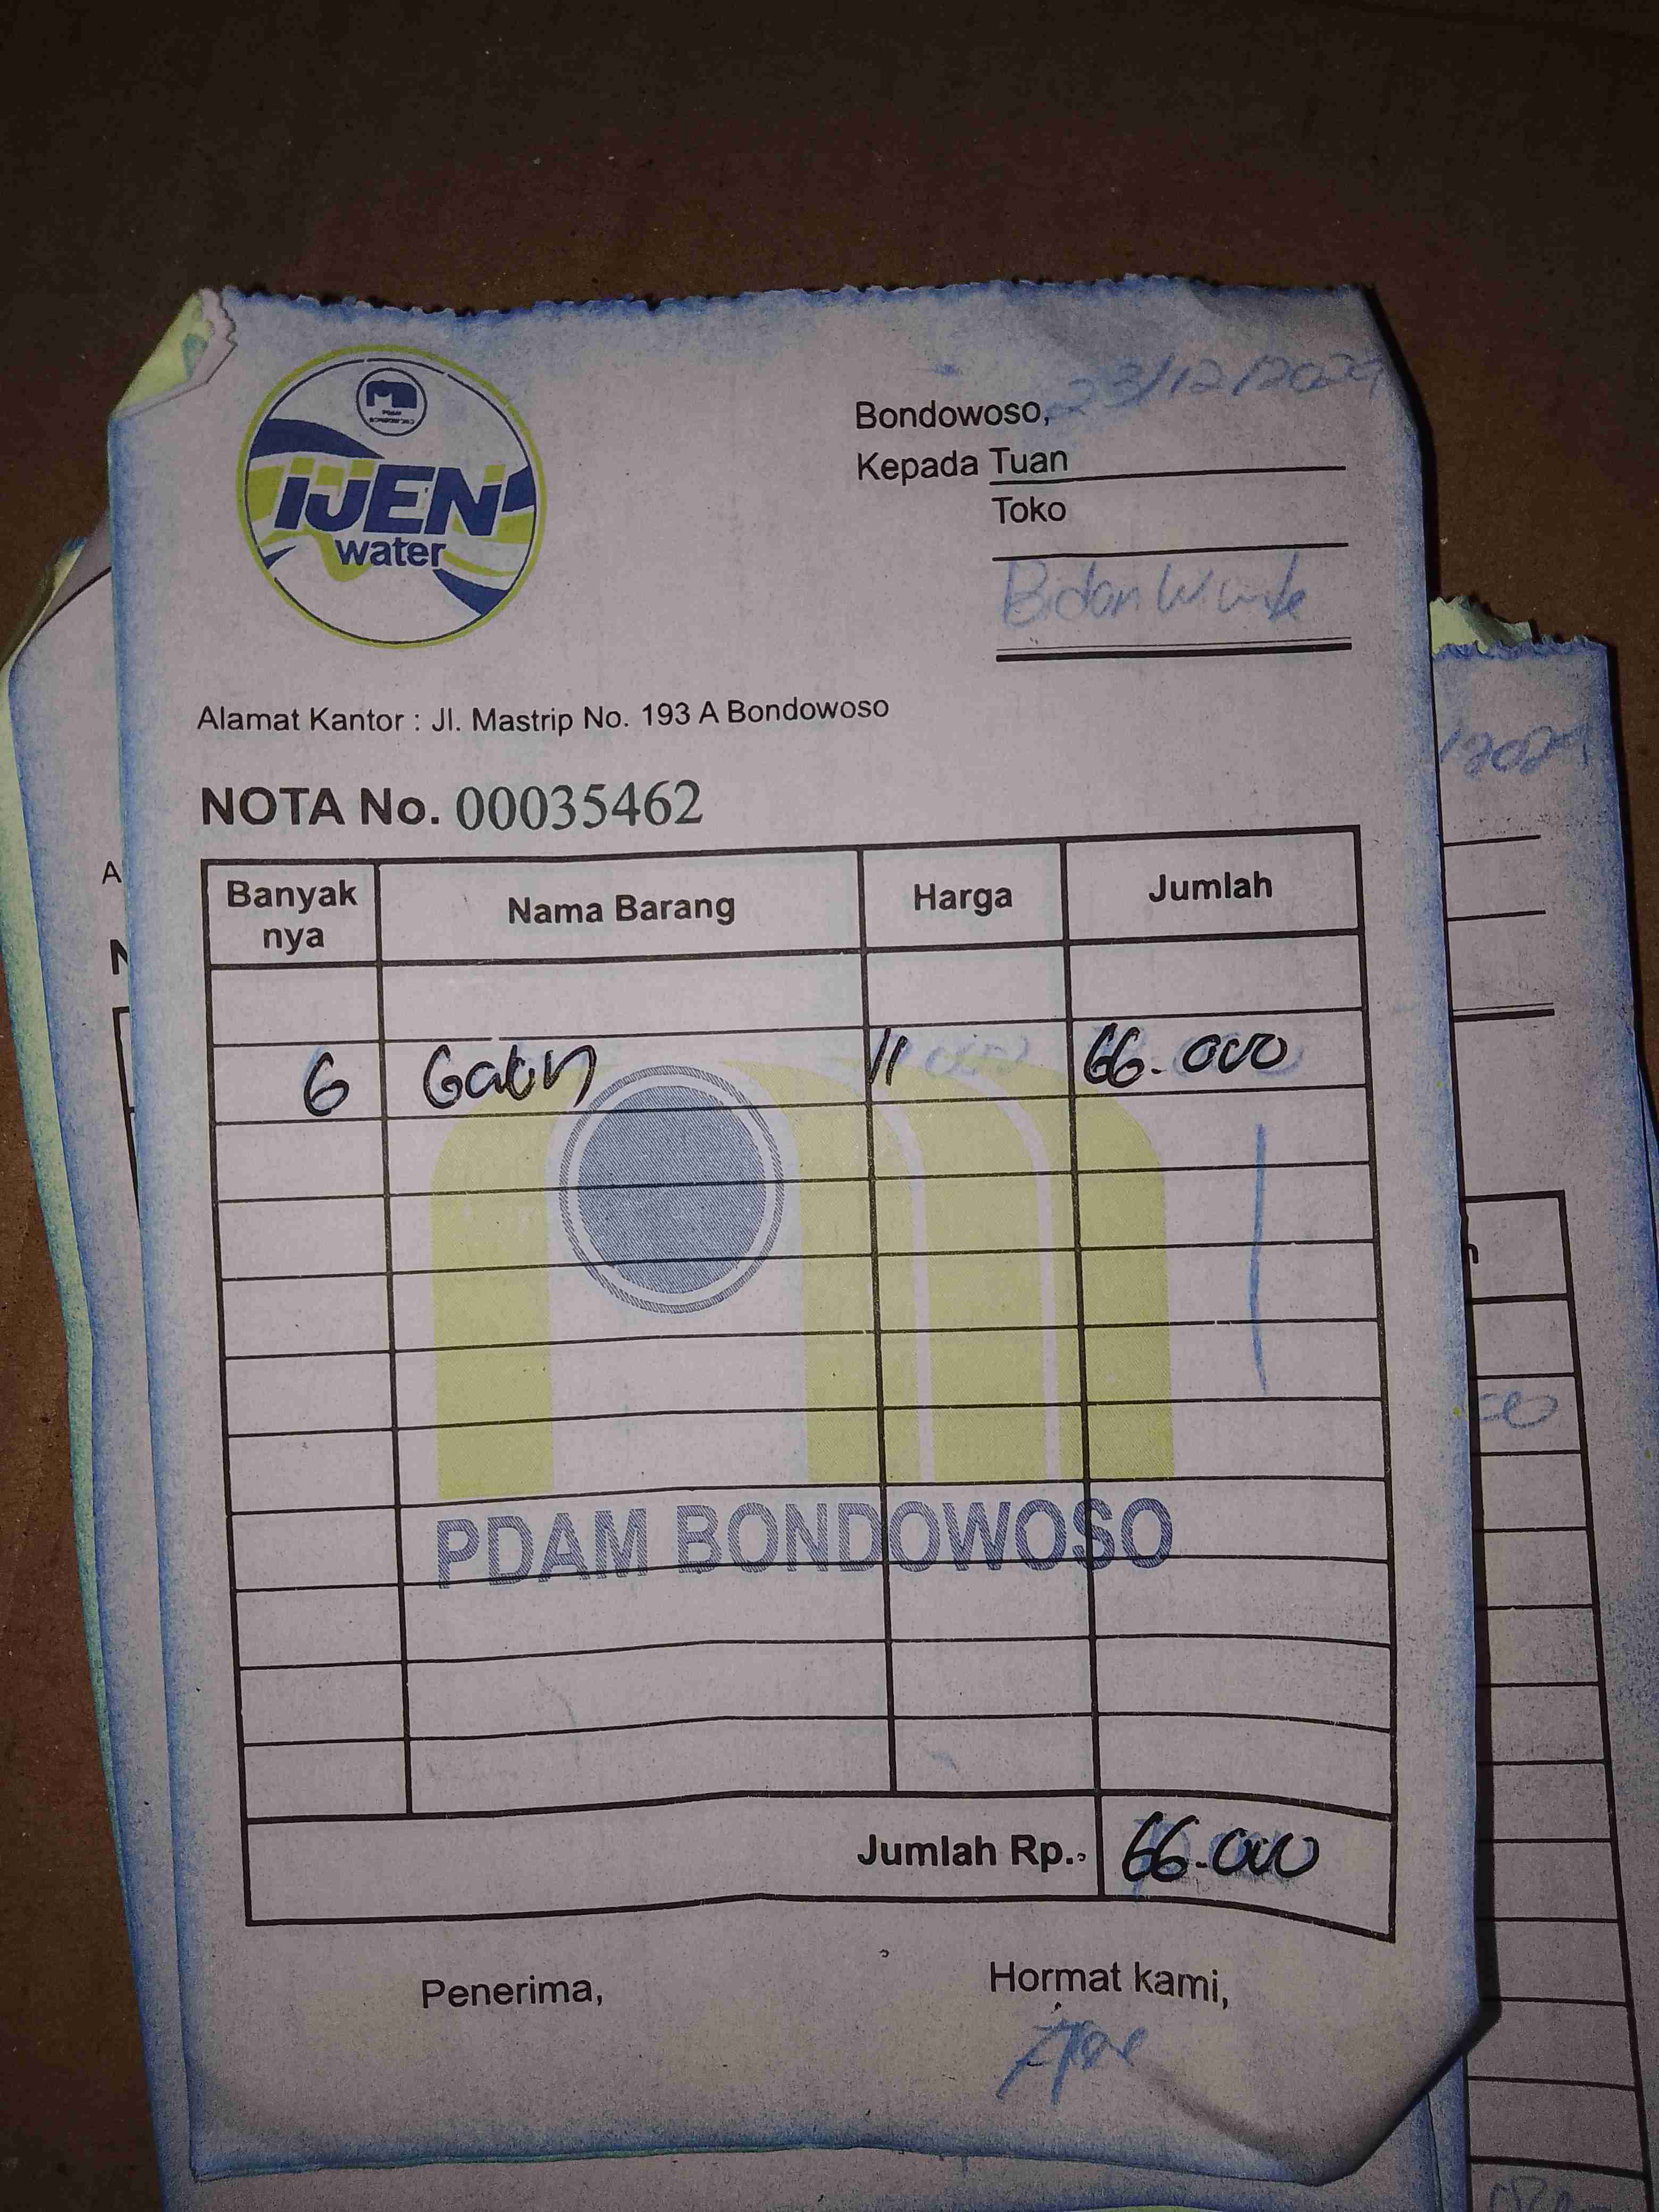 IJEN
water
Bondowoso, 23/12/2024
Kepada Tuan
Toko
Bidan
Alamat Kantor : Jl. Mastrip No. 193 A Bondowoso
NOTA No. 00035462
Banyak nya Nama Barang Harga Jumlah
6 Galon 11 000 66.000
PDAM BONDOWOSO
Jumlah Rp. 66.000
Penerima, Hormat kami,